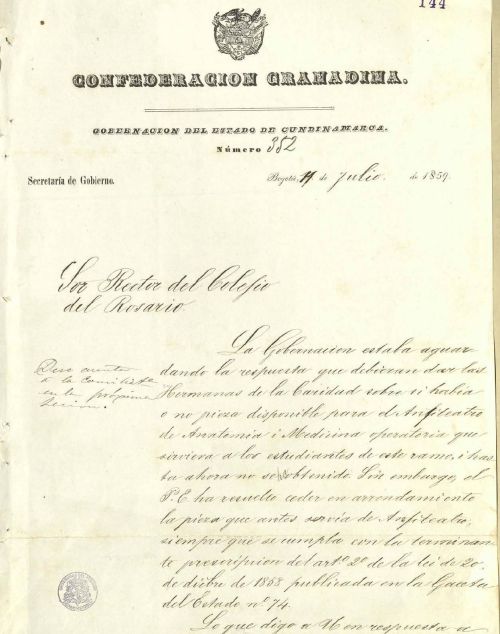 144
CONFEDERACION GRANADINA.
GOBERNACION DEL ESTADO DE CUNDINAMARCA.
Número 352
Secretaría de Gobierno.
Bogotá, 11 de Julio de 1859.
Sor Rector del Colejio
del Rosario.
Dese cuenta
a la Consiliatura
en la próxima
sesion.
La Gobernacion estaba aguar
dando la respuesta que debieran dar las
Hermanas de la Caridad sobre si habia
o no pieza disponible para el Anfiteatro
de Anatomia i Medicina operatoria que
sirviera a los estudiantes de este ramo, i has
ta ahora no se ha obtenido. Sin embargo, el
P. E. ha resuelto ceder en arrendamiento
la pieza que antes servía de Anfiteatro,
siempre que se cumpla con la terminan
te prescripcion del arto. 2o. de la lei de 20.
de dicbre de 1858 publicada en la Gaceta
del Estado no. 74.
Lo que digo a U en respuesta a